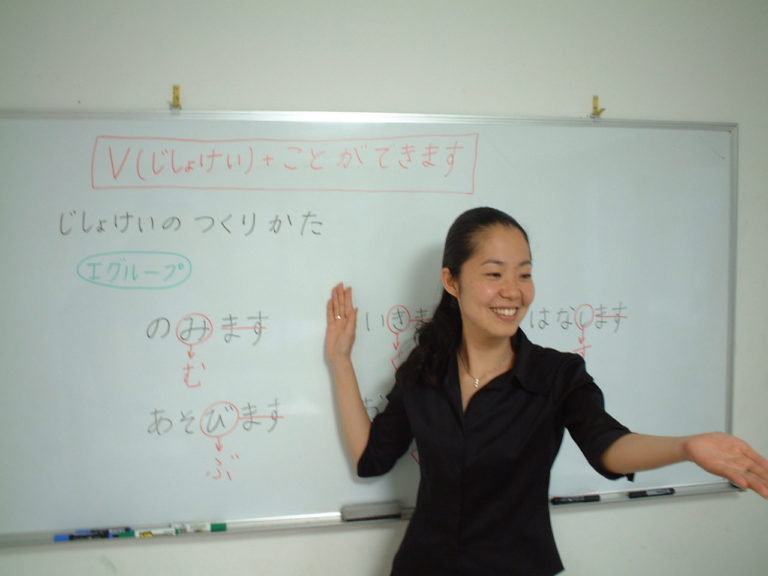 V(じしょけい)+ことができます
じしょけいの つくりかた
Iグループ
のみます いきま はなします
む す
あそびます
ぶ